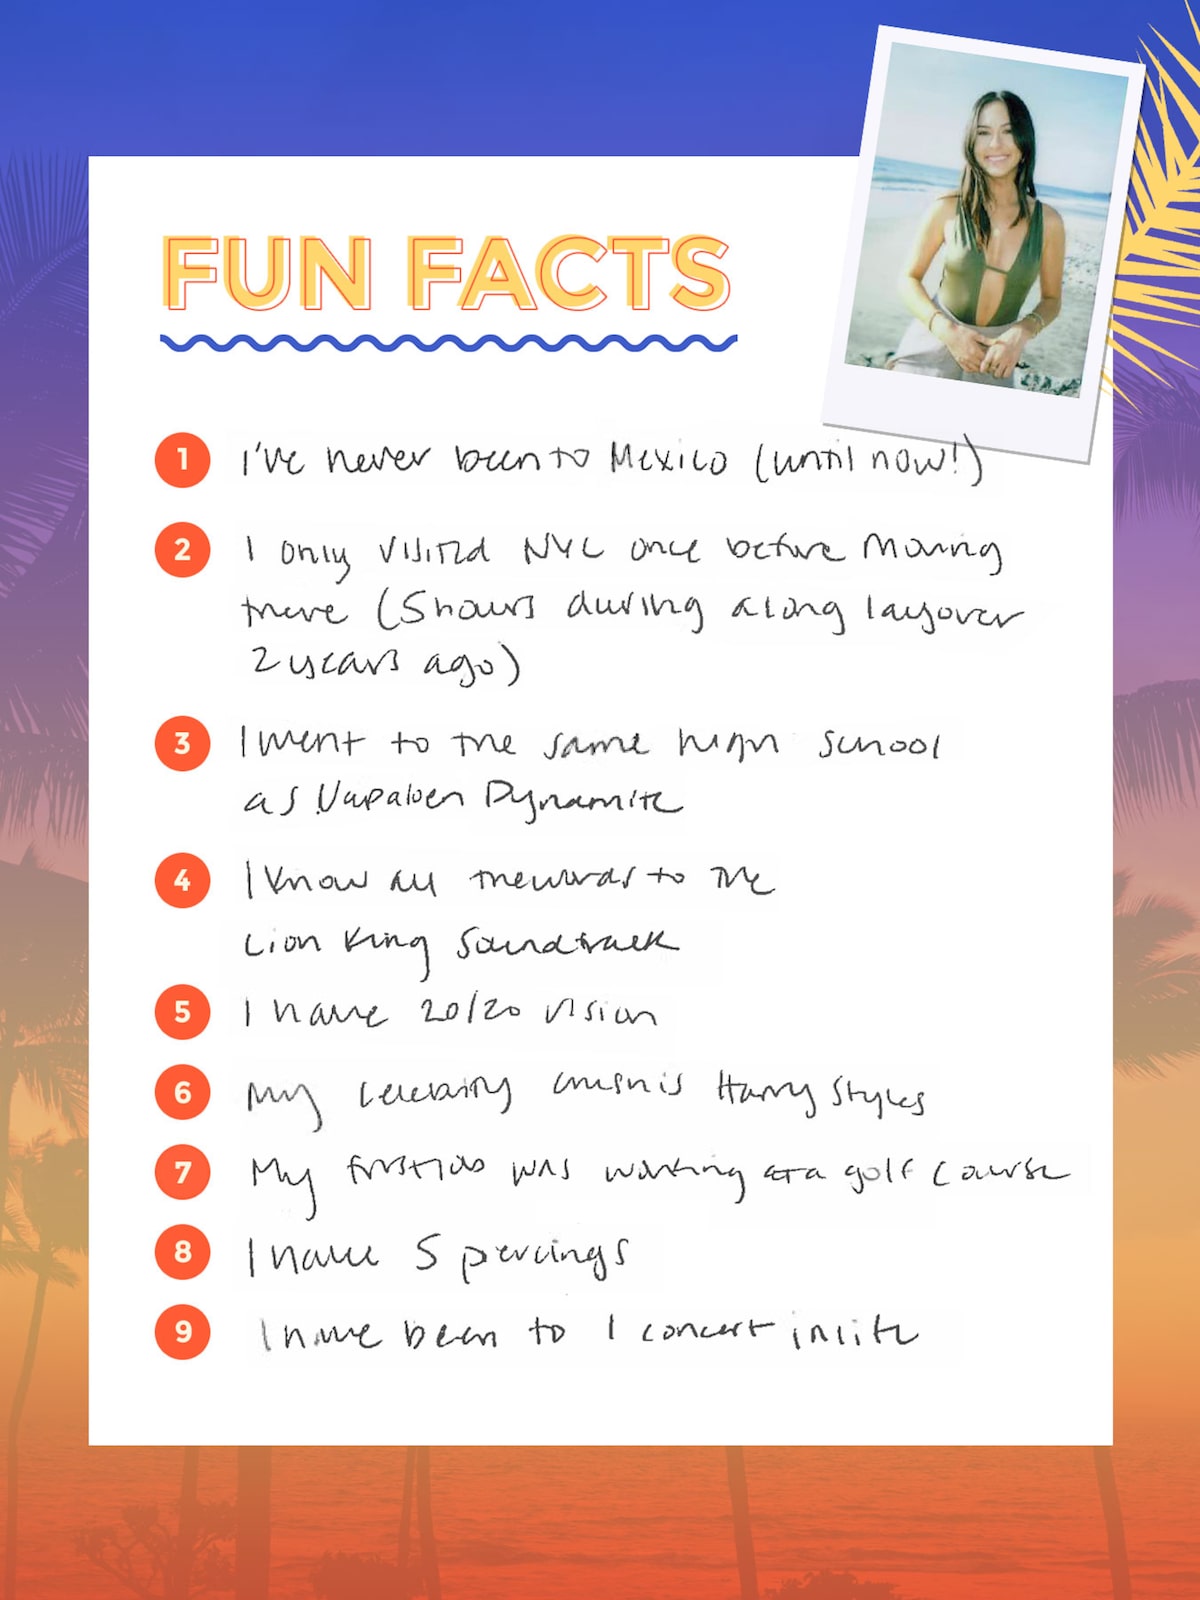 FUN FACTS
1 I've never been to Mexico (until now!)
2 I only visited NYC once before moving
there (5 hours during a long layover
2 years ago)
3 I went to the same high school
as Napaloen Dynamite
4 I know all the words to the
Lion King Soundtrack
5 I have 20/20 vision
6 My celebrity crush is Harry Styles
7 My first job was working at a golf course
8 I have 5 piercings
9 I have been to 1 concert in life